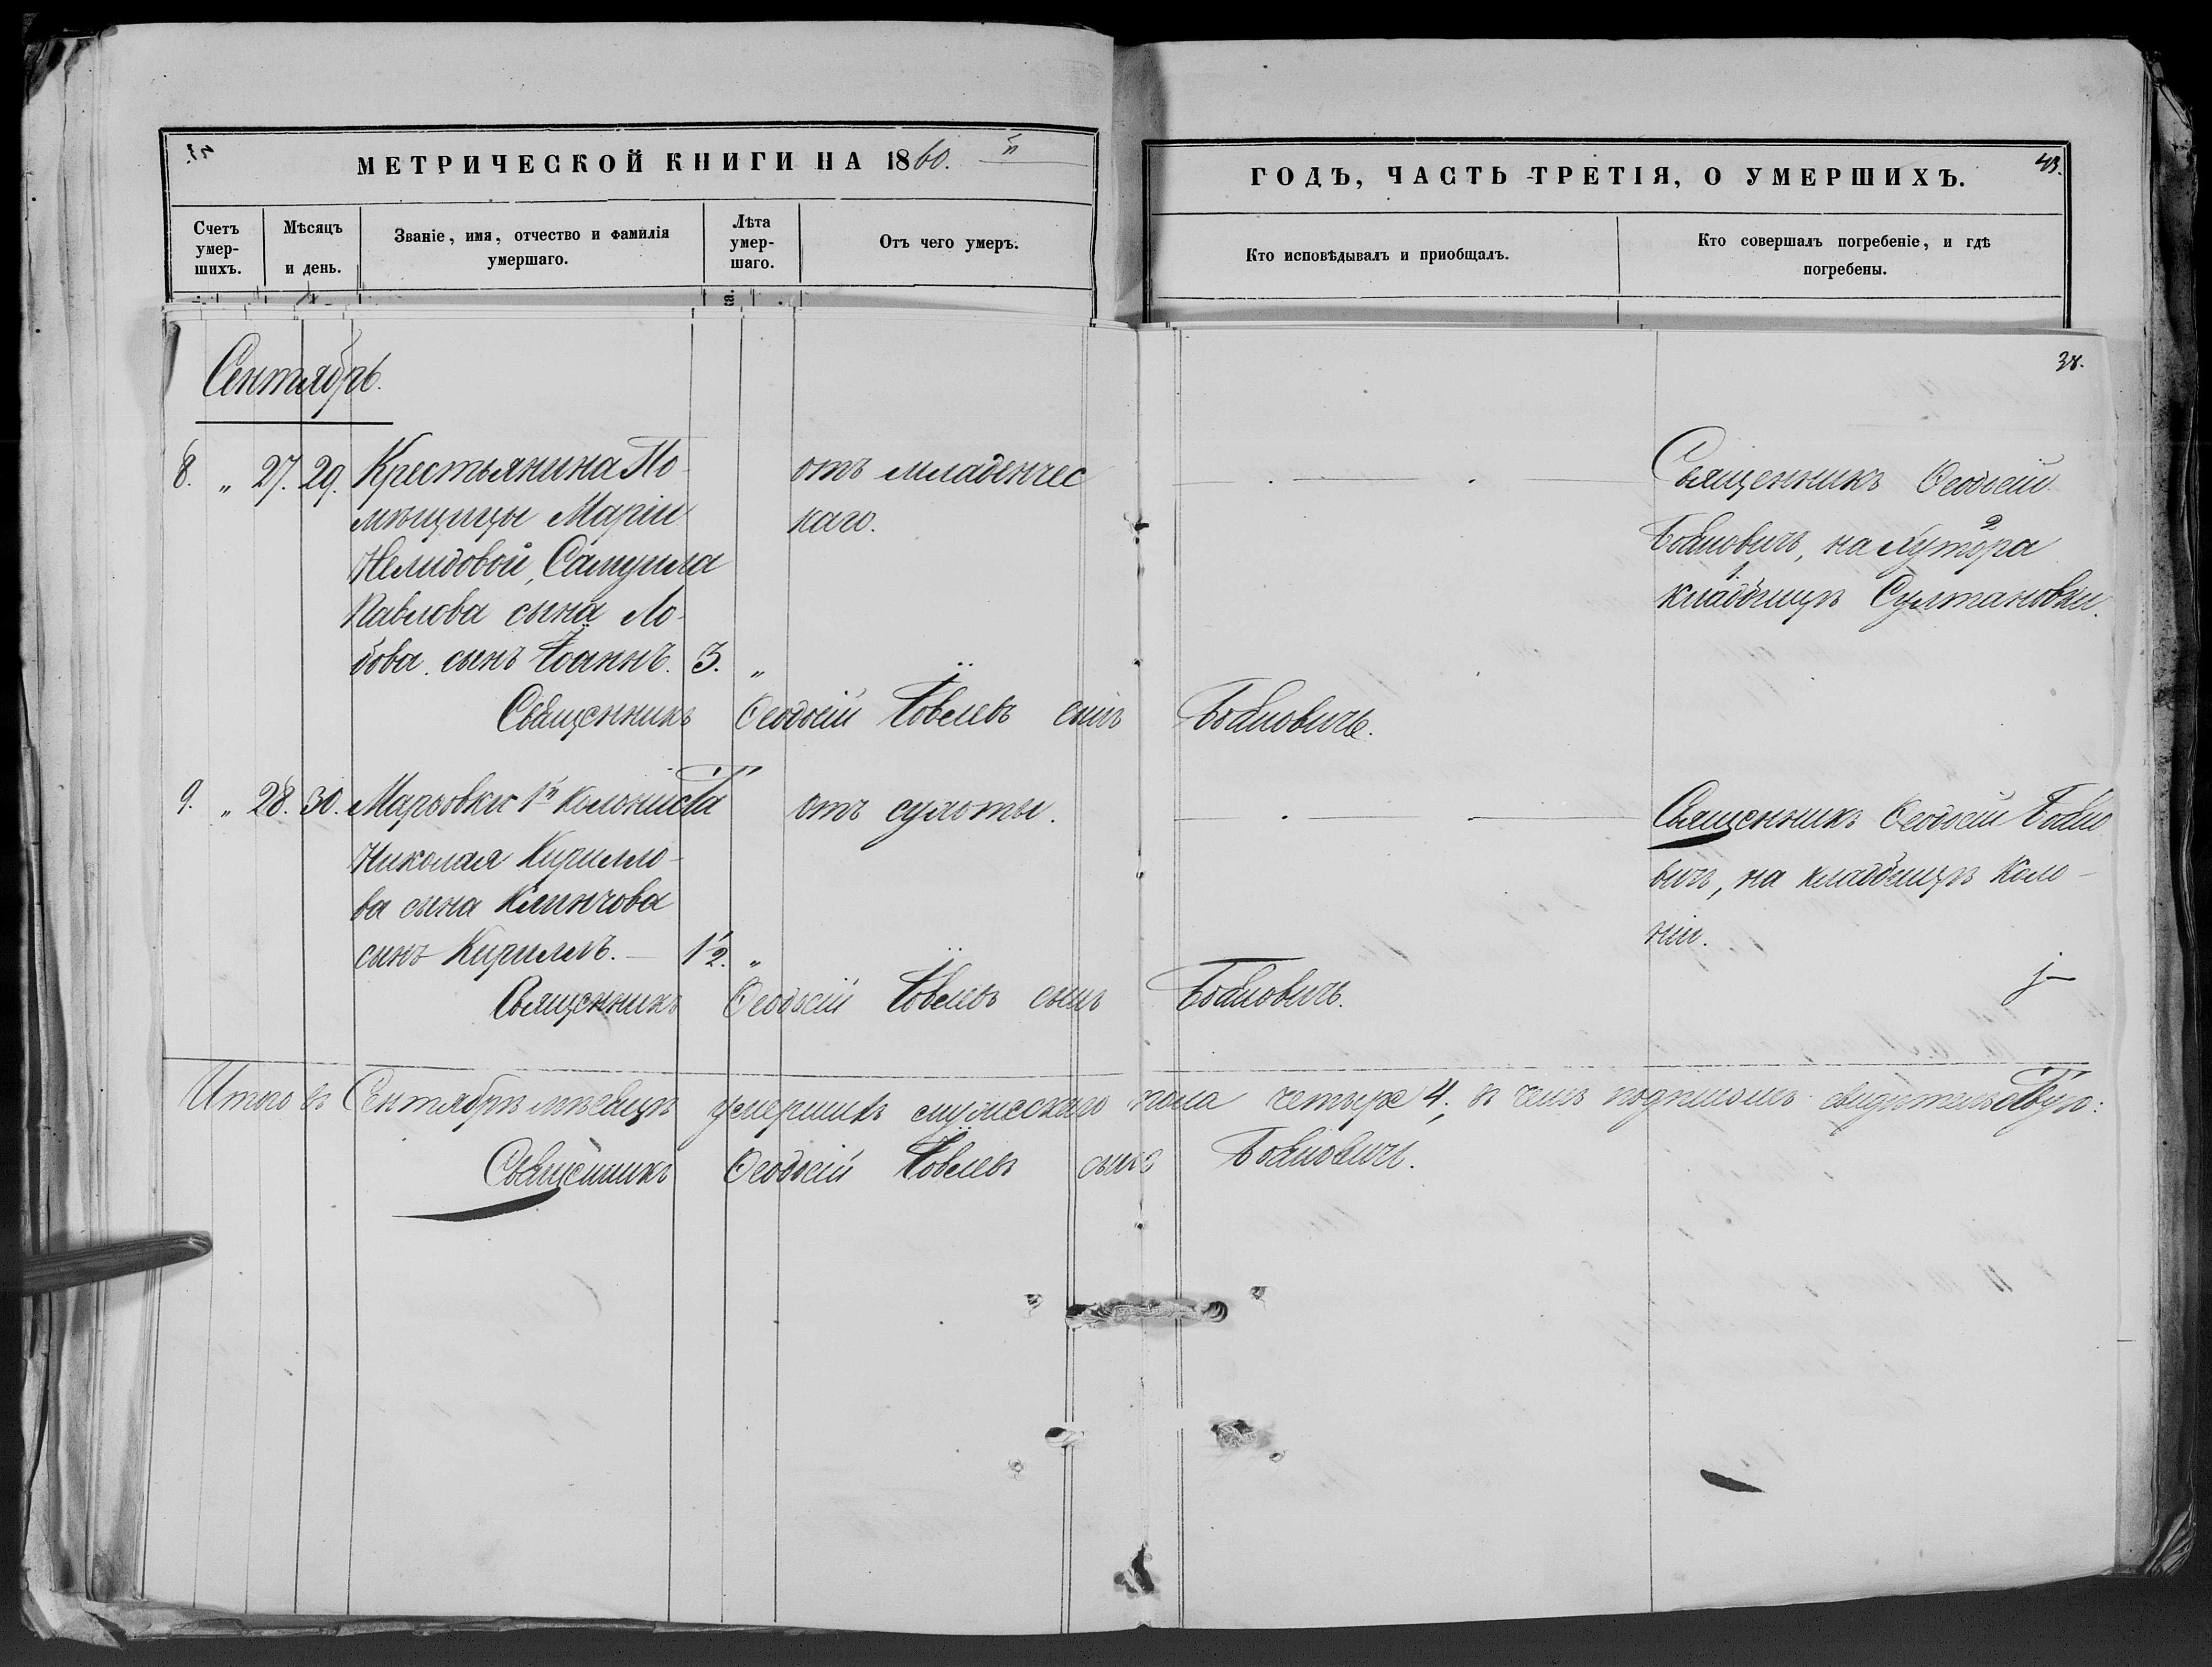 МЕТРИЧЕСКОЙ КНИГИ НА 1860.
ГОДЪ, ЧАСТЬ ТРЕТІЯ, О УМЕРШИХЪ.
43.
Счетъ умер-шихъ.
Мѣсяцъ и день.
Званіе, имя, отчество и фамилія умершаго.
Лѣта умер-шаго.
Отъ чего умеръ.
Кто исповѣдывалъ и приобщалъ.
Кто совершалъ погребеніе, и гдѣ погребены.
38.
Сентябрь.
8. „ 27. 29. Крестьянина По-
мѣщицы Маріи
Нелидовой, Самуила
Павлова сына Ло-
бова. сынъ Іоаннъ. 3. „
отъ младенчес
каго.
Священникъ Ѳеодосій
на Хутора 2
кладбищѣ 1 Султановки.
Священникъ Ѳеодосій Іовлевъ сынъ
9. „ 28. 30. 1й Колониста
Николая Кирилло-
ва сына Клинчова
сынъ Кириллъ. — 1½. „
отъ сухоты.
Священникъ Ѳеодосій
вичъ, на кладбищѣ Коло-
ніи.
Священникъ Ѳеодосій Іовлевъ сынъ
Итого въ Сентябрѣ мѣсяцѣ умершихъ мужескаго пола четыре 4, въ чемъ подписомъ свидѣтельствую:
Священникъ Ѳеодосій Іовлевъ сынъ